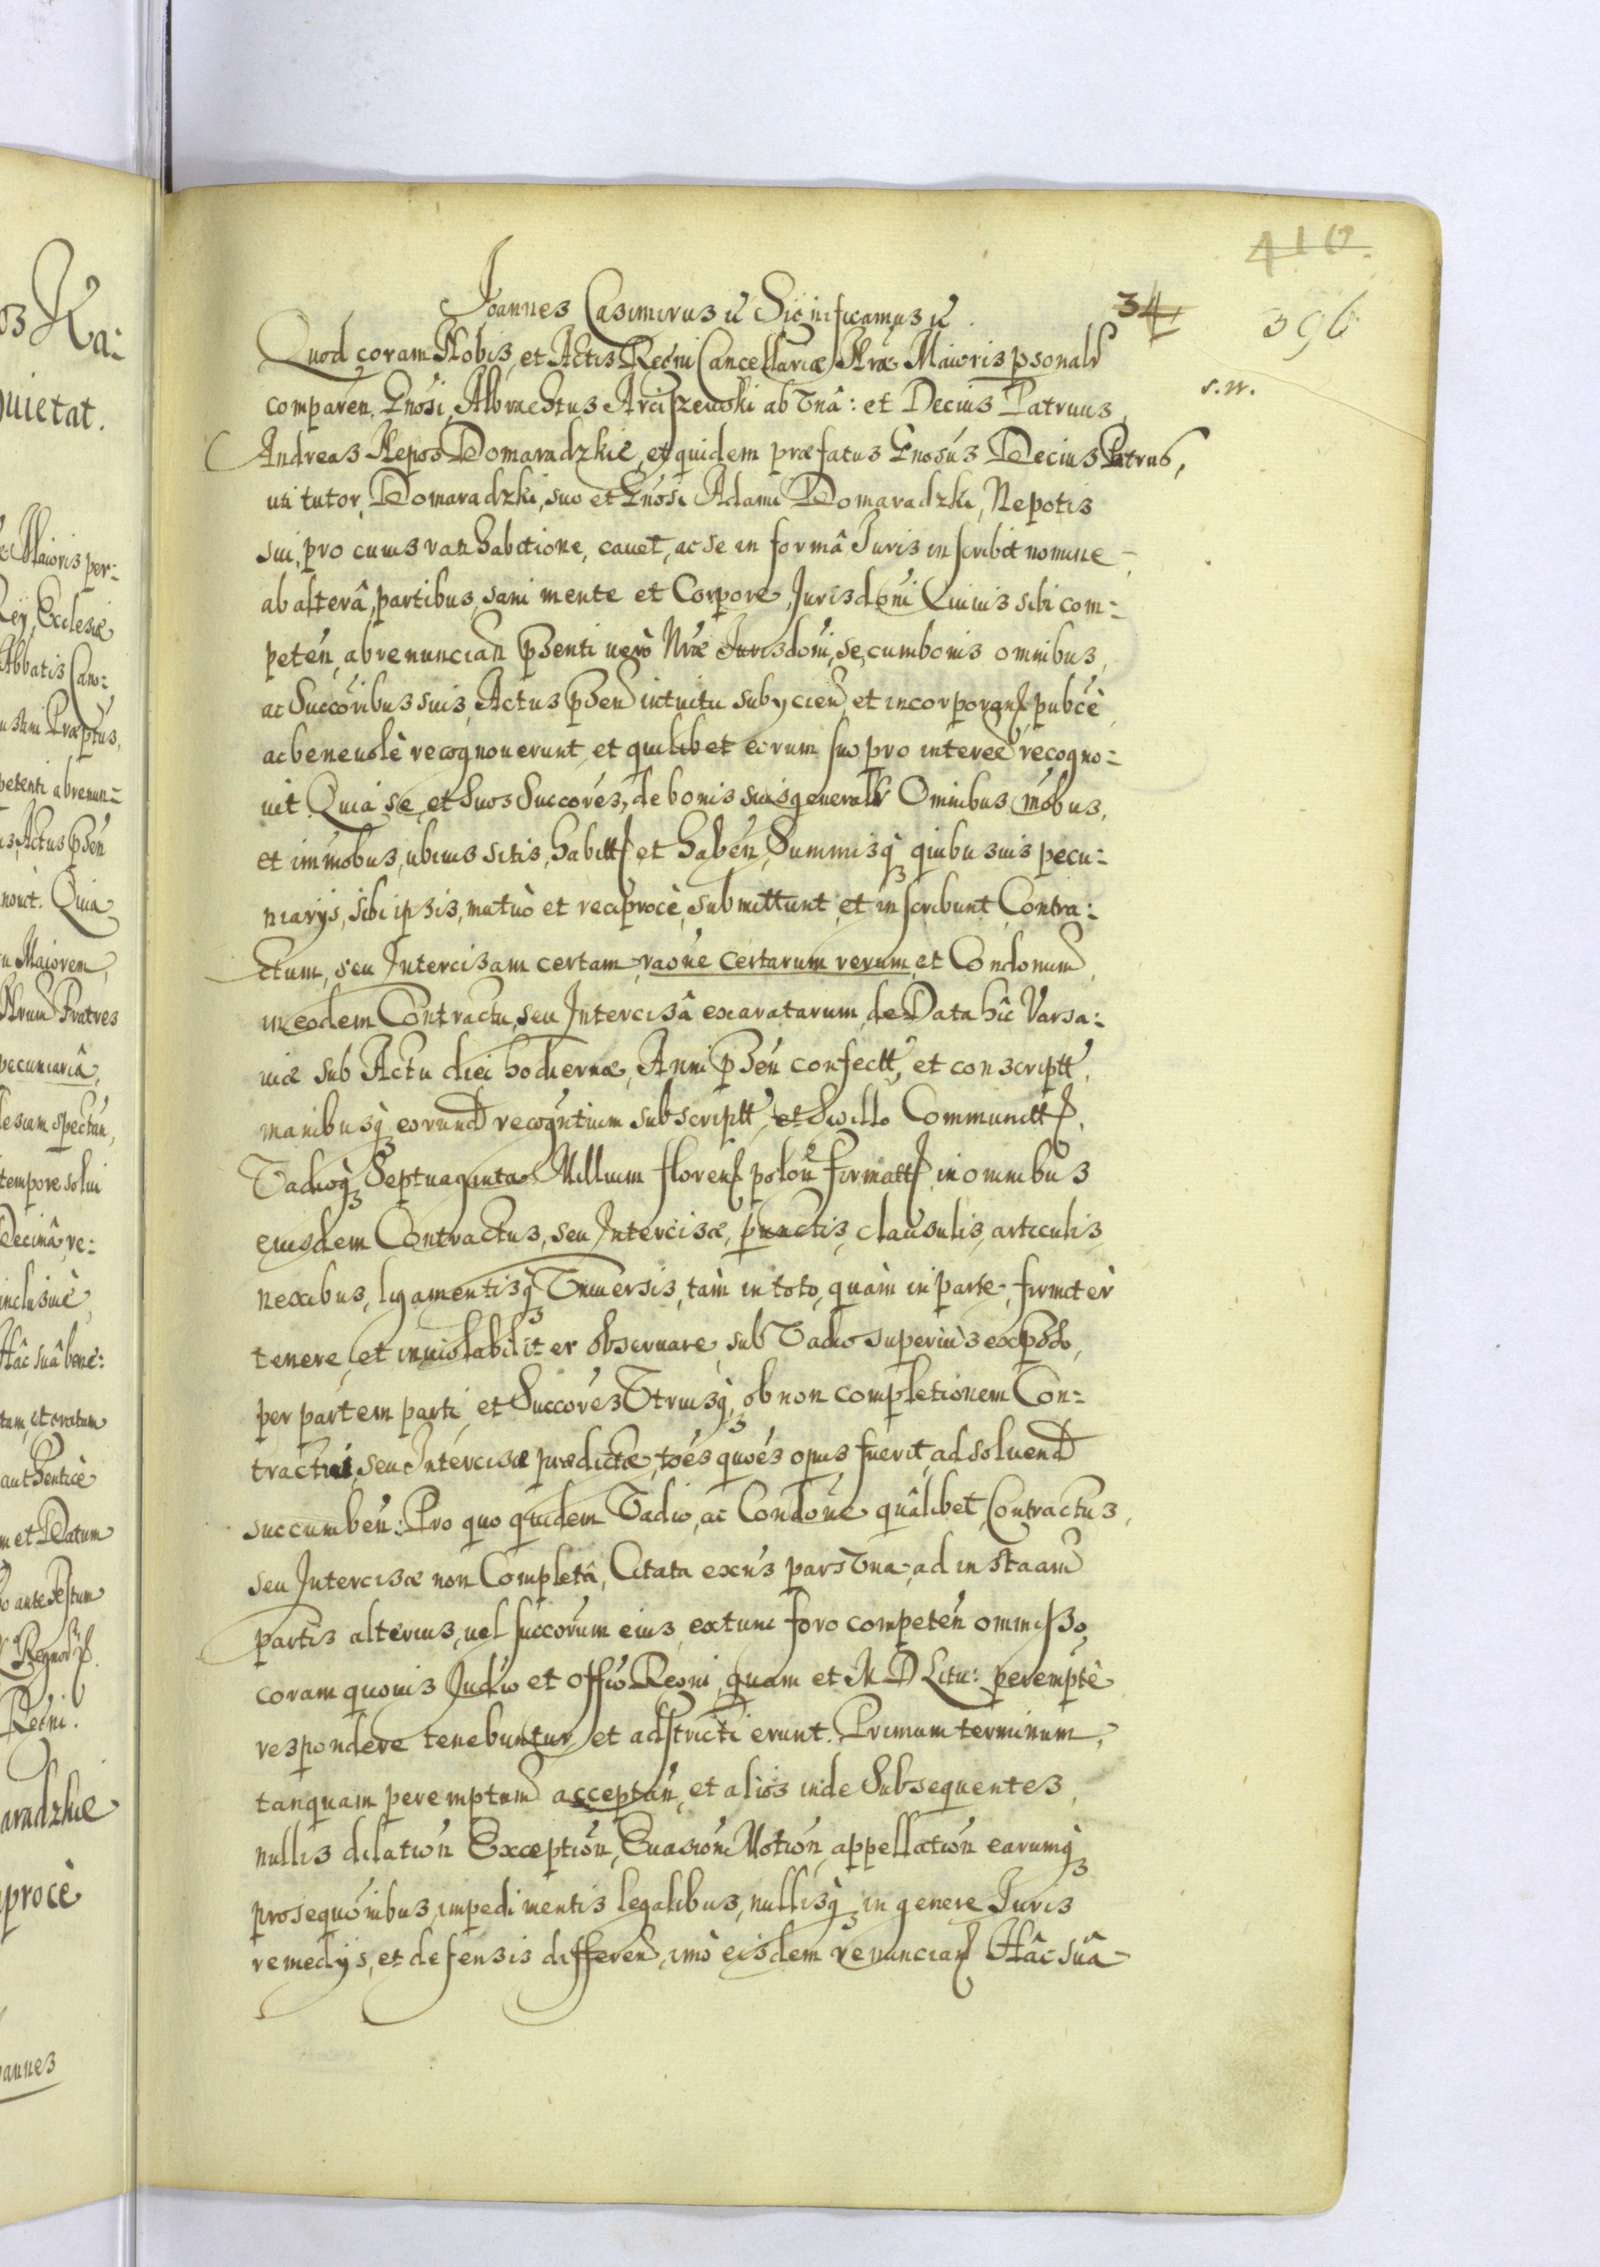 410.
396
34
s. w.
Joannes Casimirus etc Significamus etc.
Quod coram Nobis, et Actis Regni Cancellariæ Nræ Maioris psonalr
comparen. Gnosi, Albrachtus Arciszewski ab Una: et Decius Patruus
Andreas Nepos Domaradzkie, et quidem præfatus Gnosus Decius Patrus,
uti tutor, Domaradzki, suo et Gnosi Adami Domaradzki, Nepotis
sui, pro cuius ratihabitione, cavet, ac se in formâ Juris inscribit nomine
ab alterâ, partibus, sani mente et Corpore, Jurisdoni Cuiuis sibi com=
petén, abrenuncian psenti uerò Nræ Jurisdoni, se, cum bonis omnibus,
ac Succoribus suis, Actus psen intuitu subycien, et incorporan, pubcè
ac beneuolè recognouerunt, et quilibet eorum suo pro interee recogno=
uit. Quia se, et suos Succores, de bonis suis generalr Omnibus mobus,
et immobus, ubiuis sitis, habitt et haben, Summisq quibusuis pecu=
niarys, sibi ipsis, mutuò et reciprocè, submittunt, et inscribunt, Contra=
ctum, seu Intercisam certam, raone certarum rerum, et Condonum
in eodem Contractu, seu Intercisâ exaratarum, de Data hîc Varsa=
uiæ sub Actu diei hodiernæ, Anni psen confectt, et conscriptt,
manibusq eorund recogntium subscriptt, et Sigillo Communitt,
Vadioq Septuaginta Millium floren polon firmatt, in omnibus
eiusdem Contractus, seu Intercisæ, punctis, clausulis, articulis
nexibus, ligamentisq Universis, tàm in toto, quàm in parte, firmitèr
tenere, et inuiolabiliter obseruare, sub Vadio superiùs expsso,
per partem parti, et Succores Utriusq, ob non completionem Con=
tractui, seu Intercisæ prædictæ, toés quoés opus fuerit, ad soluend
succumben: Pro quo quidem Vadio, ac Condone quâlibet Contractus,
seu Intercisæ non Completâ, Citata exnis pars Una, ad instaam
partis alterius, uel succorum eius, extunc foro competén ommisso,
coram quouis Judio et Offio Regni, quam et M D Litu: peremptè
respondere tenebuntur, et adstricti erunt. Primum terminum,
tanquam peremptum acceptan, et alios inde Subsequentes,
nullis dilation Exception, Euasion Motion, appellation earumq
prosequonibus, impedimentis legalibus, nullisq in genere Juris
remedys, et defensis differen, imò eisdem renuncian. Hâc suâ